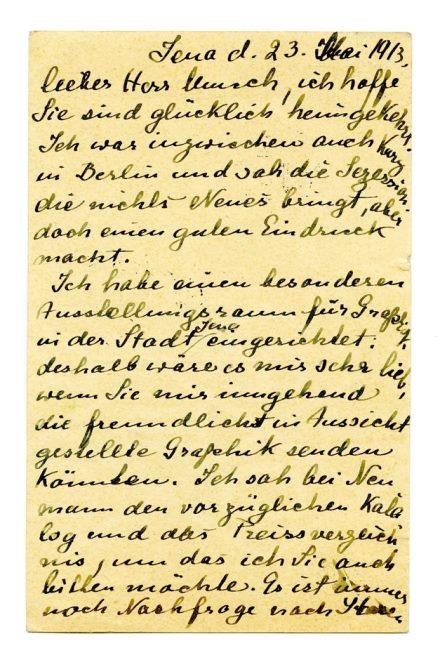 Jena d. 23. Mai 1913,
lieber Herr Munch, ich hoffe
Sie sind glücklich heimgekehrt.
Ich war inzwischen auch kurz
in Berlin und sah die Sezession
die nichts Neues bringt, aber
doch einen guten Eindruck
macht.
Ich habe einen besonderen
Ausstellungsraum für Graphik
in der Stadt Jena eingerichtet.
deshalb wäre es mir sehr lieb,
wenn Sie mir umgehend
die freundlichst in Aussicht
gestellte Graphik senden
könnten. Ich sah bei Neu
mann den vorzüglichen Kata
log und das Preissverzeich
nis, um das ich Sie auch
bitten möchte. Es ist immer
noch Nachfrage nach Ihren